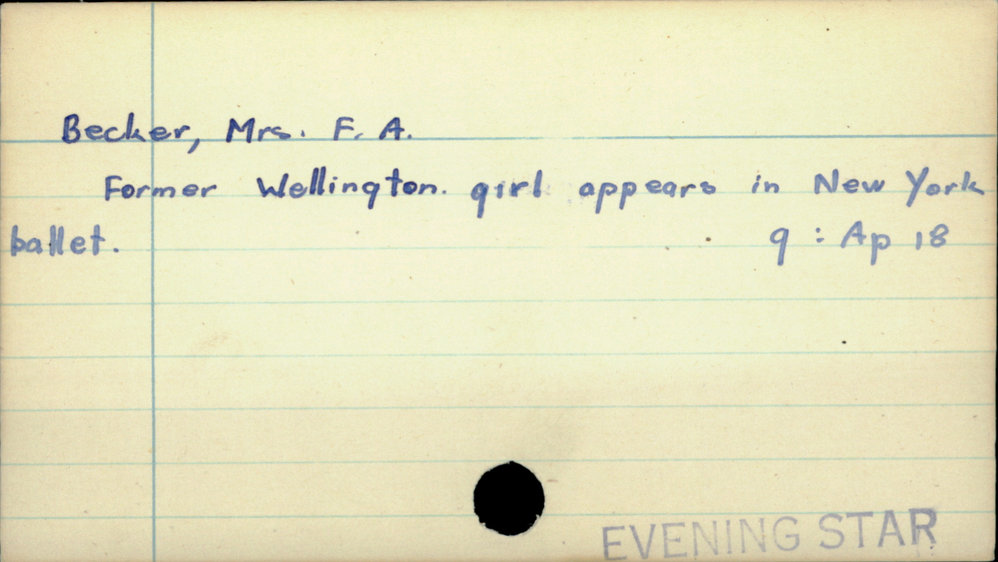 Becker, Mrs. F. A.
Former Wellington girl appears in New York
ballet. 9 : Ap 18
EVENING STAR